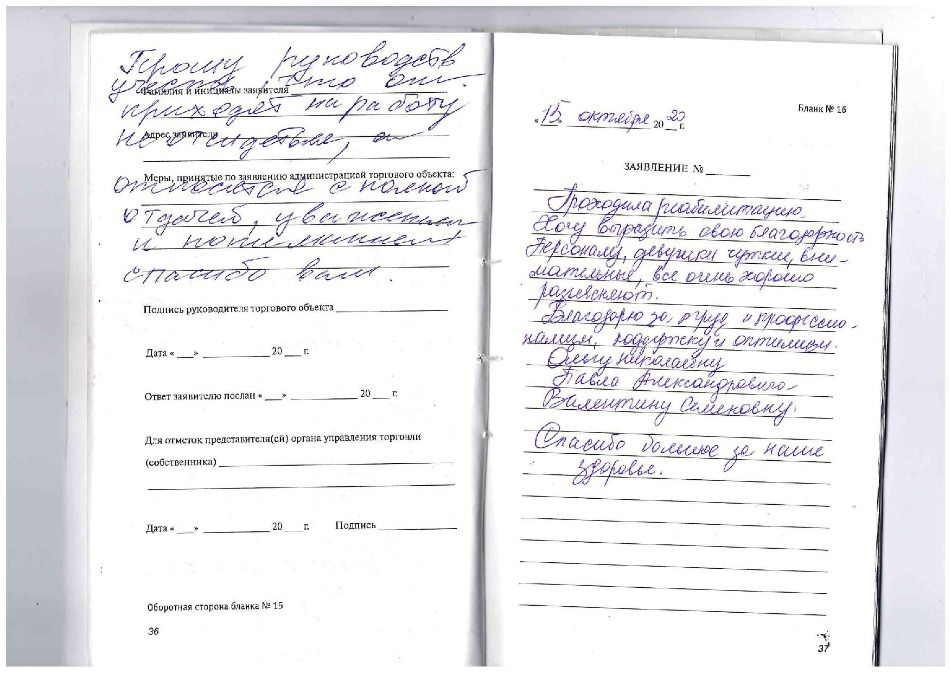 Прошу руководств
учесть, что они
Фамилия и инициалы заявителя
приходят на работу
Адрес заявителя
не отсидеться, а
Меры, принятые по заявлению администрацией торгового объекта:
относятся с полной
отдачей, уважением
и пониманием
спасибо вам
Подпись руководителя торгового объекта
Дата « ___ » ____________ 20 ___ г.
Ответ заявителю послан « ___ » ____________ 20 ___ г.
Для отметок представителя(ей) органа управления торговли
(собственника)
Дата « ___ » ____________ 20 ___ г. Подпись ____________
Оборотная сторона бланка № 15
36
Бланк № 16
«15 октября 2020 г.
ЗАЯВЛЕНИЕ № ______
Проходила реабилитацию.
Хочу выразить свою благодарность
персоналу, девушки чуткие, вни-
мательные, все очень хорошо
разъясняют.
Благодарю за труд и професcио-
нализм, поддержку и оптимизм.
Ольгу Николаевну
Павла Александровича
Валентину Семеновну.
Спасибо большое за наше
здоровье.
37